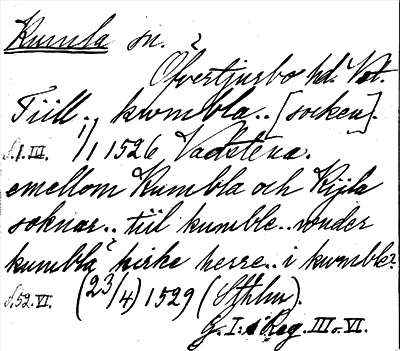 Kumla sn.
Öfvertjurbo hd. Vst.
Tiill.. kwmbla.. [socken].
S. 1. III. 1/1 1526 Vadstena.
emellom Kumbla och Kijla
soknar.. tiil kumble.. vonder
kumbla kirke herre.. i kwmble.
S. 52. VI. (23/4) 1529 (Sthlm).
G. I:s Reg. III o. VI.